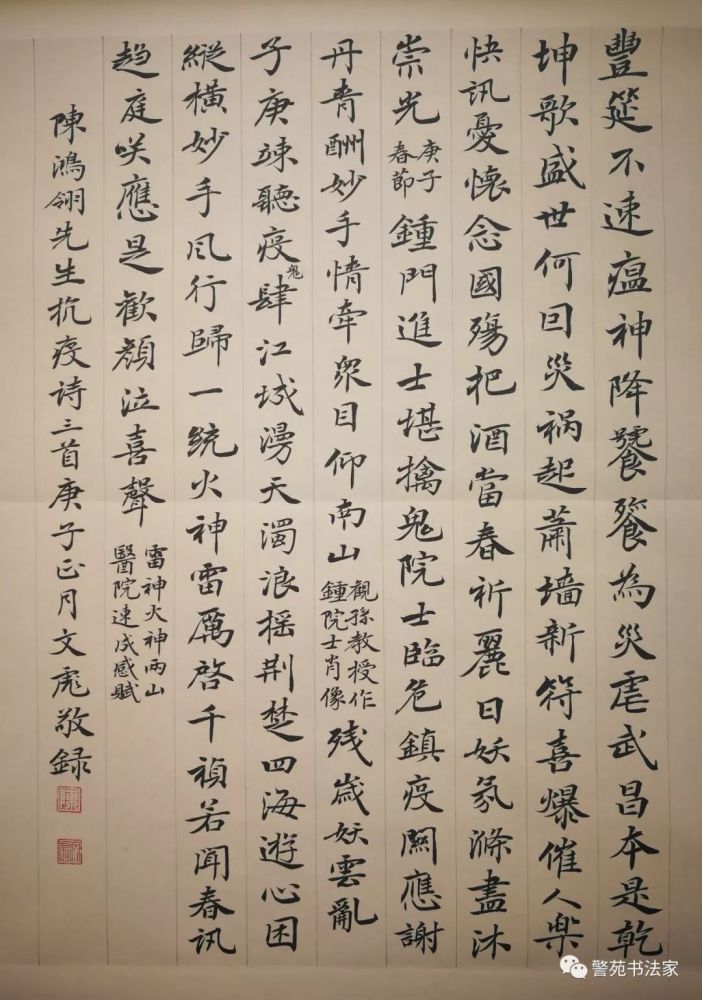 豐筵不速瘟神降饕餮為災虐武昌本是乾
坤歌盛世何曰災祸起蕭墻新符喜爆催人樂
快訊憂懷念國殤把酒當春祈麗日妖氛滌盡沐
崇光庚子春節鍾門進士堪擒鬼院士臨危鎮疫關應謝
丹青酬妙手情牽眾目仰南山觀孫教授作鍾院士肖像残歲妖雲亂
子庚竦聽疫鬼肆江城漫天濁浪摇荆楚四海遊心困
縱橫妙手风行歸一统火神雷厲啓千禎若闻春讯
趋庭咲應是歡顏泣喜聲雷神火神两山醫院速成感赋
陳鴻翎先生抗疫诗三首庚子正月文彪敬録
警苑书法家